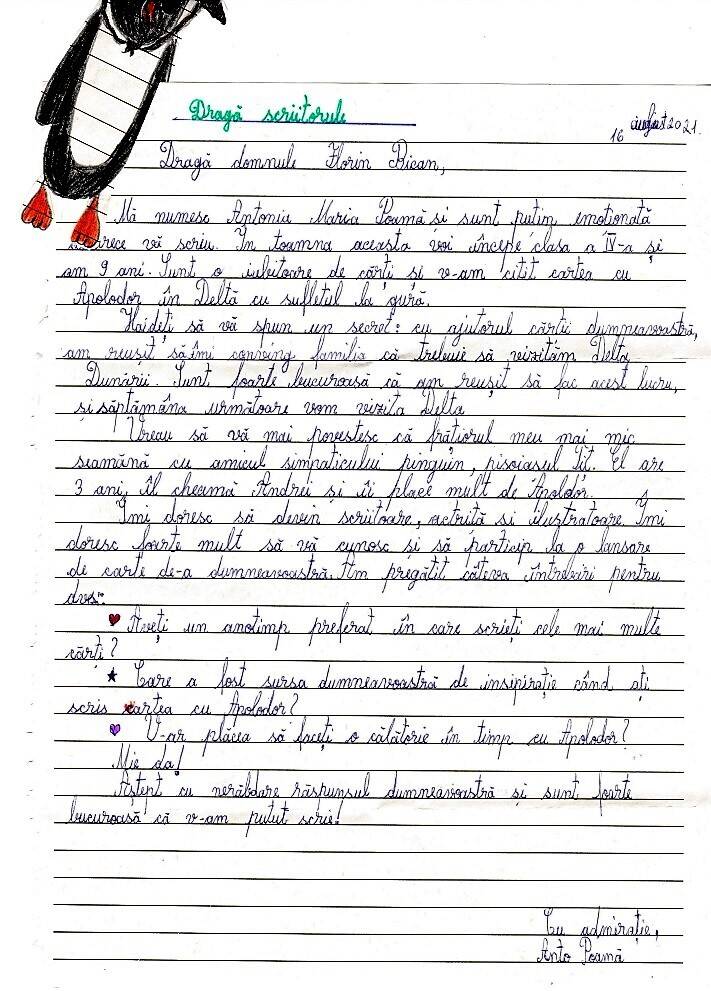 Dragă scriitorule
16 august 2021.
Dragă domnule Florin Bican,
Mă numesc Antonia Maria Poamă și sunt puțin emoționată
rece vă scriu. În toamna aceasta voi începe clasa a IV-a și
am 9 ani. Sunt o iubitoare de cărți și v-am citit cartea cu
Apolodor în Deltă cu sufletul la gură.
Haideți să vă spun un secret: cu ajutorul cărții dumneavoastră,
am reușit să îmi conving familia că trebuie să vizităm Delta
Dunării. Sunt foarte bucuroasă că am reușit să fac acest lucru,
și săptămâna următoare vom vizita Delta
Vreau să vă mai povestesc că frățiorul meu mai mic
seamănă cu amicul simpaticului pinguin, pisoiașul Tit. El are
3 ani, îl cheamă Andrei și îi place mult de Apolodor.
Îmi doresc să devin scriitoare, actriță și ilustratoare. Îmi
doresc foarte mult să vă cunosc și să particip la o lansare
de carte de-a dumneavoastră. Am pregătit câteva întrebări pentru
dvs.:
Aveți un anotimp preferat în care scrieți cele mai multe
cărți?
Care a fost sursa dumneavoastră de insipirație când ați
scris cartea cu Apolodor?
V-ar plăcea să faceți o călătorie în timp cu Apolodor?
Mie da!
Aștept cu nerăbdare răspunsul dumneavoastră și sunt foarte
bucuroasă că v-am putut scrie!
Cu admirație,
Anto Poamă